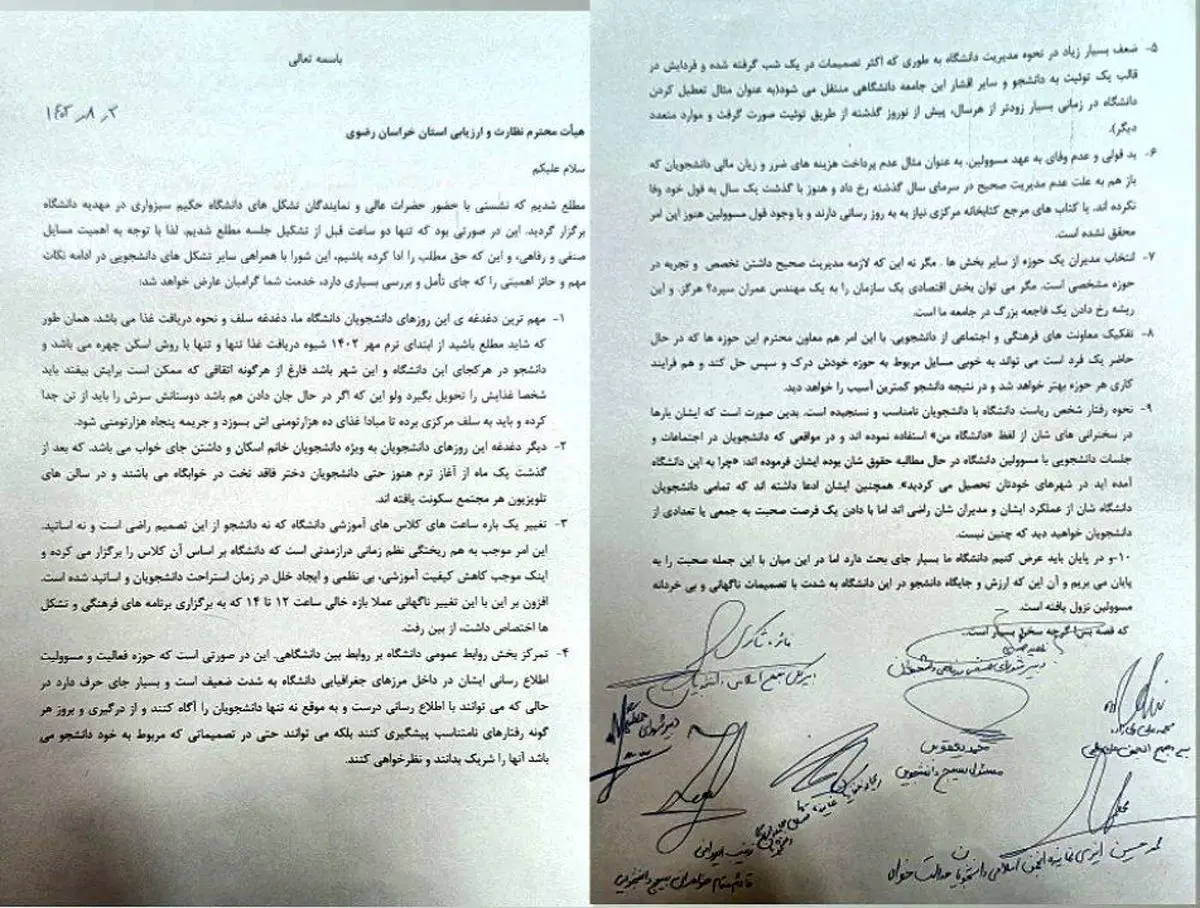 باسمه تعالی
۱۴۰۲٫۸٫۳
هیأت محترم نظارت و ارزیابی استان خراسان رضوی
سلام علیکم
مطلع شدیم که نشستی با حضور حضرات عالی و نمایندگان تشکل های دانشگاه حکیم سبزواری در مهدیه دانشگاه
برگزار گردید. این در صورتی بود که تنها دو ساعت قبل از تشکیل جلسه مطلع شدیم. لذا با توجه به اهمیت مسایل
صنفی و رفاهی، و این که حق مطلب را ادا کرده باشیم، این شورا با همراهی سایر تشکل های دانشجویی در ادامه نکات
مهم و حائز اهمیتی را که جای تأمل و بررسی بسیاری دارد، خدمت شما گرامیان عارض خواهد شد:
۱- مهم ترین دغدغه ی این روزهای دانشجویان دانشگاه ما، دغدغه سلف و نحوه دریافت غذا می باشد. همان طور
که شاید مطلع باشید از ابتدای ترم مهر ۱۴۰۲ شیوه دریافت غذا تنها و تنها با روش اسکن چهره می باشد و
دانشجو در هرکجای این دانشگاه و این شهر باشد فارغ از هرگونه اتفاقی که ممکن است برایش بیفتد باید
شخصا غذایش را تحویل بگیرد ولو این که اگر در حال جان دادن هم باشد دوستانش سرش را باید از تن جدا
کرده و باید به سلف مرکزی برده تا مبادا غذای ده هزارتومنی اش بسوزد و جریمه پنجاه هزارتومنی شود.
۲- دیگر دغدغه این روزهای دانشجویان به ویژه دانشجویان خانم اسکان و داشتن جای خواب می باشد. که بعد از
گذشت یک ماه از آغاز ترم هنوز حتی دانشجویان دختر فاقد تخت در خوابگاه می باشند و در سالن های
تلویزیون هر مجتمع سکونت یافته اند.
۳- تغییر یک باره ساعت های کلاس های آموزشی دانشگاه که نه دانشجو از این تصمیم راضی است و نه اساتید.
این امر موجب به هم ریختگی نظم زمانی درازمدتی است که دانشگاه بر اساس آن کلاس را برگزار می کرده و
اینک موجب کاهش کیفیت آموزشی، بی نظمی و ایجاد خلل در زمان استراحت دانشجویان و اساتید شده است.
افزون بر این با این تغییر ناگهانی عملا بازه خالی ساعت ۱۲ تا ۱۴ که به برگزاری برنامه های فرهنگی و تشکل
ها اختصاص داشت، از بین رفت.
۴- تمرکز بخش روابط عمومی دانشگاه بر روابط بین دانشگاهی. این در صورتی است که حوزه فعالیت و مسوولیت
اطلاع رسانی ایشان در داخل مرزهای جغرافیایی دانشگاه به شدت ضعیف است و بسیار جای حرف دارد در
حالی که می توانند با اطلاع رسانی درست و به موقع نه تنها دانشجویان را آگاه کنند و از درگیری و بروز هر
گونه رفتارهای نامتناسب پیشگیری کنند بلکه می توانند حتی در تصمیماتی که مربوط به خود دانشجو می
باشد آنها را شریک بدانند و نظرخواهی کنند.
۵- ضعف بسیار زیاد در نحوه مدیریت دانشگاه به طوری که اکثر تصمیمات در یک شب گرفته شده و فردایش در
قالب یک توئیت به دانشجو و سایر اقشار این جامعه دانشگاهی منتقل می شود(به عنوان مثال تعطیل کردن
دانشگاه در زمانی بسیار زودتر از هرسال، پیش از نوروز گذشته از طریق توئیت صورت گرفت و موارد متعدد
دیگر).
۶- بد قولی و عدم وفای به عهد مسوولین. به عنوان مثال عدم پرداخت هزینه های ضرر و زیان مالی دانشجویان که
باز هم به علت عدم مدیریت صحیح در سرمای سال گذشته رخ داد و هنوز با گذشت یک سال به قول خود وفا
نکرده اند. یا کتاب های مرجع کتابخانه مرکزی نیاز به به روز رسانی دارند و با وجود قول مسوولین هنوز این امر
محقق نشده است.
۷- انتخاب مدیران یک حوزه از سایر بخش ها . مگر نه این که لازمه مدیریت صحیح داشتن تخصص و تجربه در
حوزه مشخصی است. مگر می توان بخش اقتصادی یک سازمان را به یک مهندس عمران سپرد؟ هرگز. و این
ریشه رخ دادن یک فاجعه بزرگ در جامعه ما است.
۸- تفکیک معاونت های فرهنگی و اجتماعی از دانشجویی. با این امر هم معاون محترم این حوزه ها که در حال
حاضر یک فرد است می تواند به خوبی مسایل مربوط به حوزه خودش درک و سپس حل کند و هم فرایند
کاری هر حوزه بهتر خواهد شد و در نتیجه دانشجو کمترین آسیب را خواهد دید.
۹- نحوه رفتار شخص ریاست دانشگاه با دانشجویان نامناسب و نسنجیده است. بدین صورت است که ایشان بارها
در سخنرانی های شان از لفظ «دانشگاه من» استفاده نموده اند و در مواقعی که دانشجویان در اجتماعات و
جلسات دانشجویی با مسوولین دانشگاه در حال مطالبه حقوق شان بوده ایشان فرموده اند: «چرا به این دانشگاه
آمده اید در شهرهای خودتان تحصیل می کردید». همچنین ایشان ادعا داشته اند که تمامی دانشجویان
دانشگاه شان از عملکرد ایشان و مدیران شان راضی اند اما با دادن یک فرصت صحبت به جمعی یا تعدادی از
دانشجویان خواهید دید که چنین نیست.
۱۰-و در پایان باید عرض کنیم دانشگاه ما بسیار جای بحث دارد اما در این میان با این جمله صحبت را به
پایان می بریم و آن این که ارزش و جایگاه دانشجو در این دانشگاه به شدت با تصمیمات ناگهانی و بی خردانه
مسوولین نزول یافته است.
که قصه بس! گرچه سخن بسیار است.
دبیر شورای صنفی رفاهی دانشجویان
مسئول بسیج دانشجویی
زینب
قائم مقام خواهران بسیج دانشجویی
محمد حسین نماینده انجمن اسلامی دانشجویان عدالت خواه